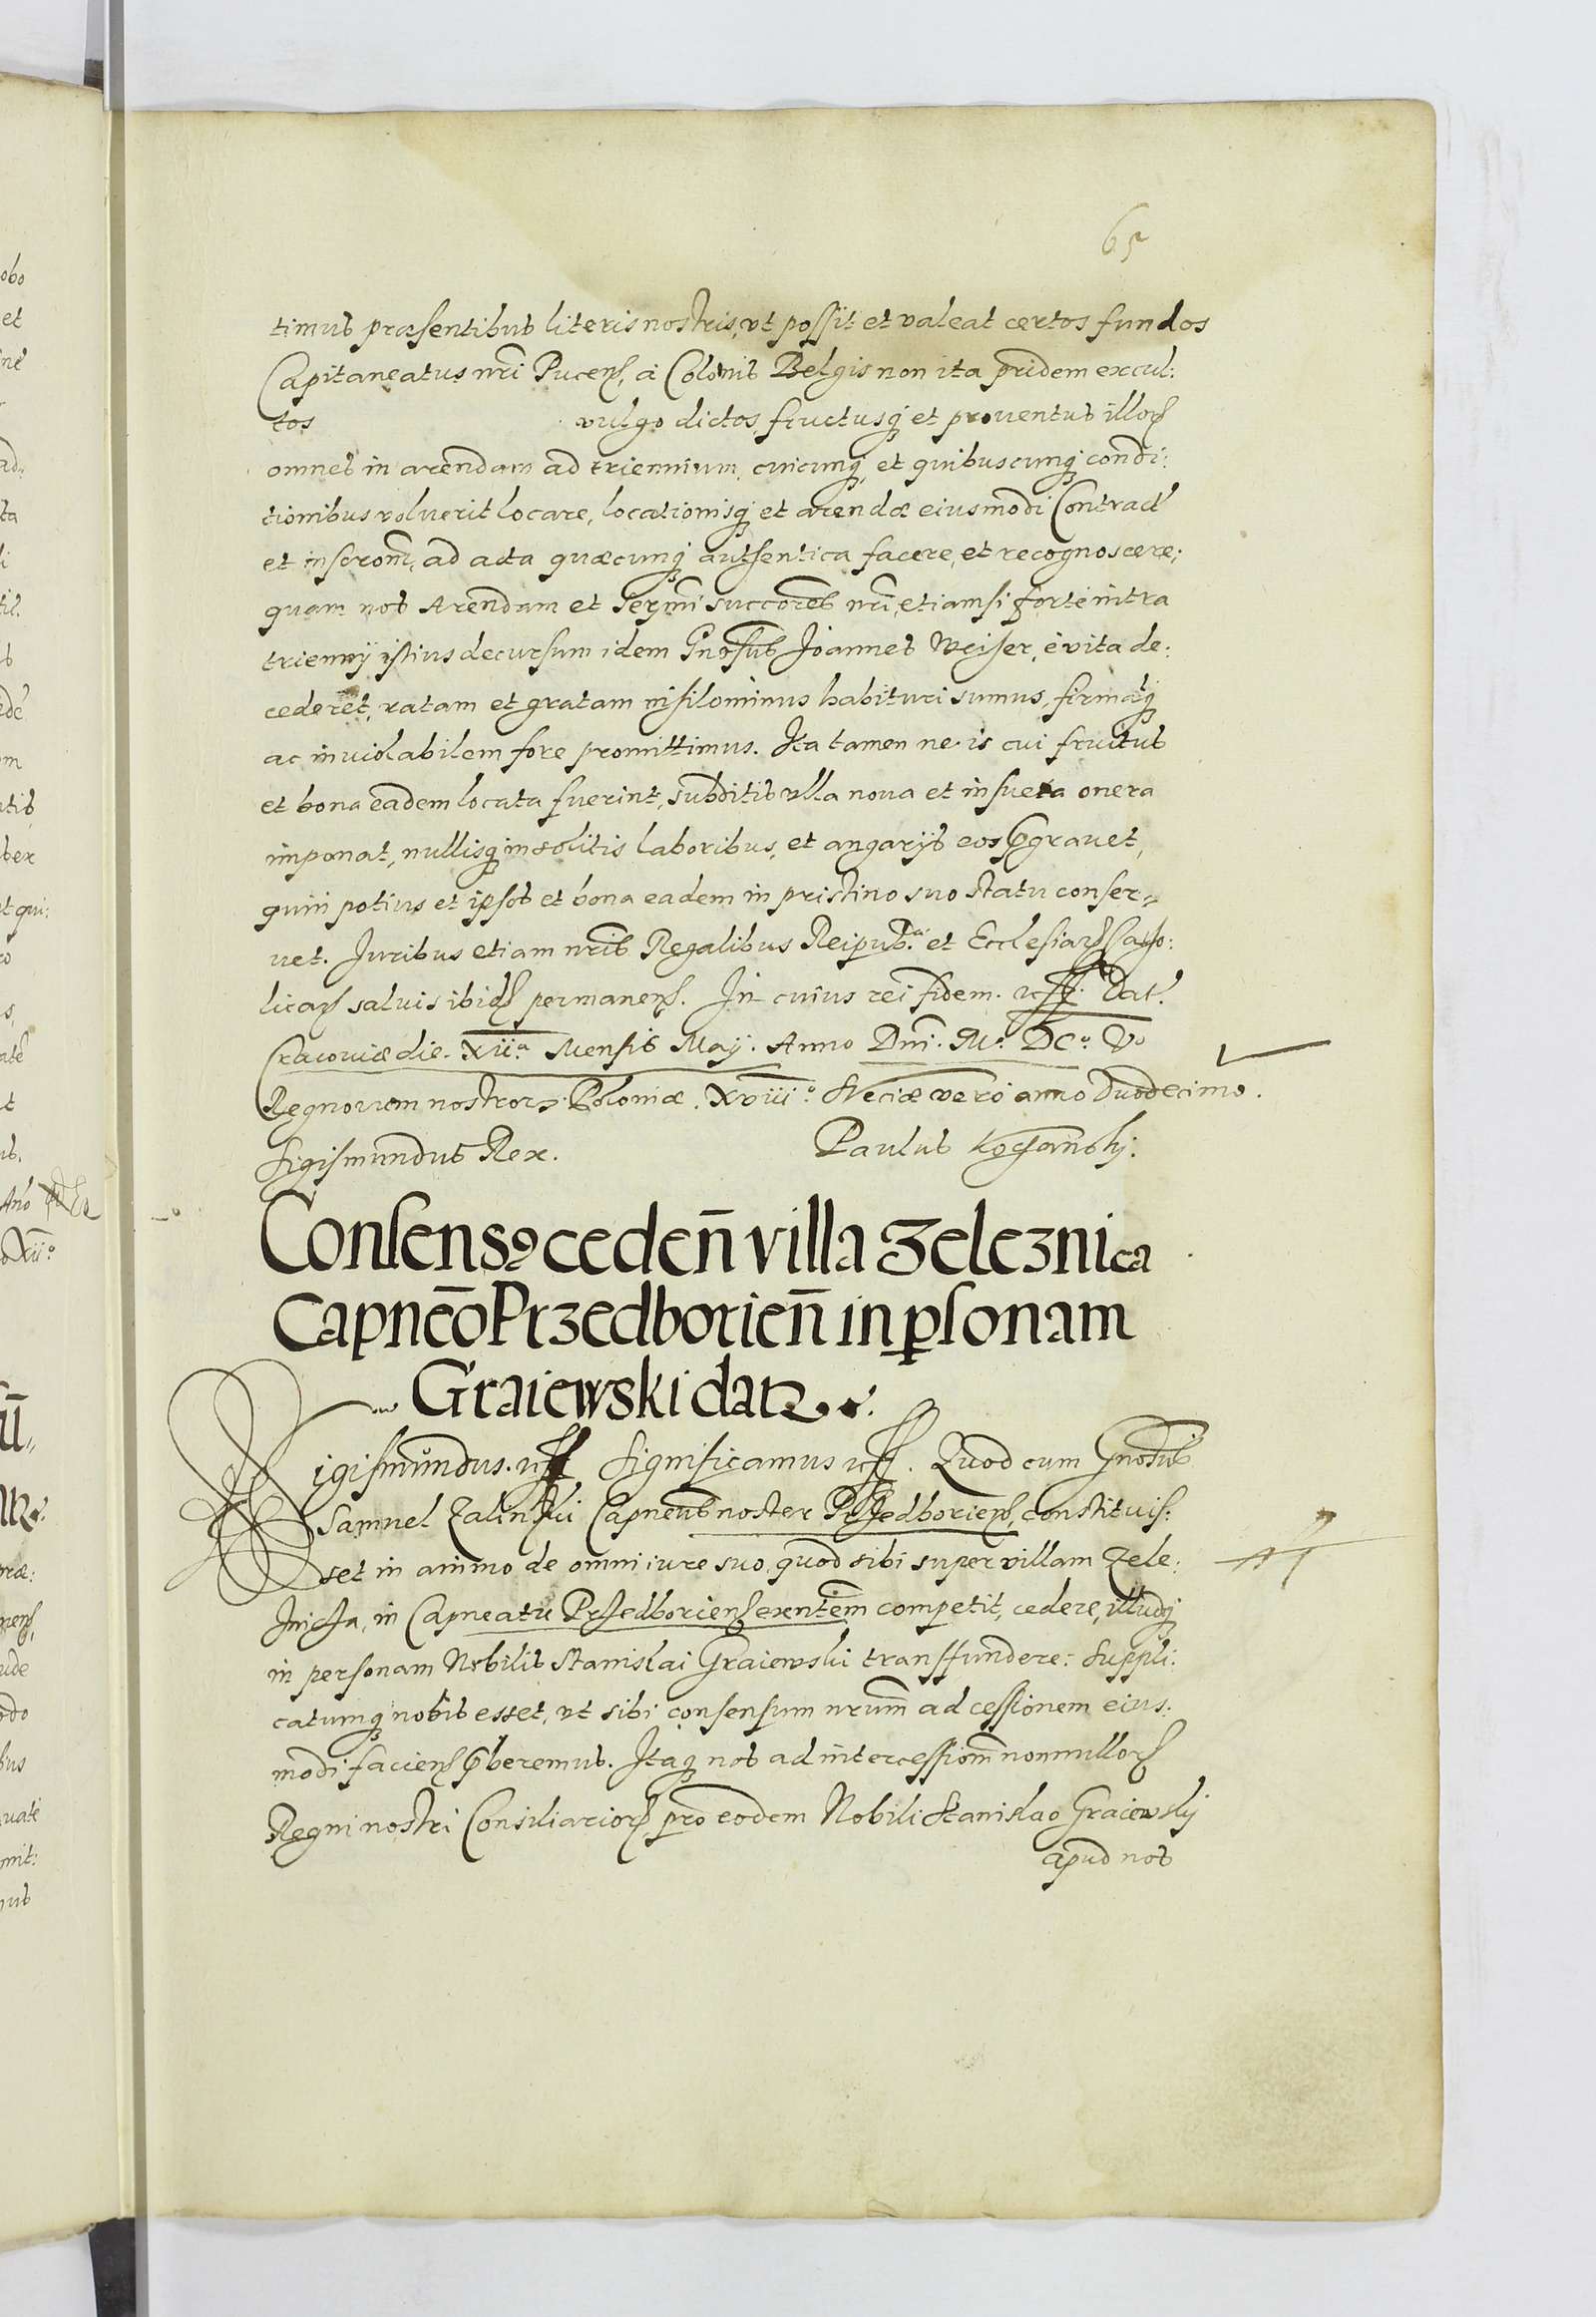 65
timus præsentibus literis nostris, ut possit et valeat certos fundos
Capitaneatus nri Pucens, a Colonis Belgis non ita pridem excul:
tos vulgo dictos, fructusq et proventus illor
omnes in arendam ad triennium, cuicunq, et quibuscunq condi:
tionibus voluerit locare, locationisq et arendæ eiusmodi Contract
et inscrom, ad acta quæcunq authentica facere, et recognoscere;
quam nos Arendam et Sermi succores nri, etiamsi forte intra
triennÿ istius decursum idem Gnosus Joannes Weiser, è vita de:
cederet, ratam et gratam nihilominus habituri sumus, firmaq
ac inviolabilem fore promittimus. Ita tamen ne is cui fructus
et bona eadem locata fuerint, subditis ulla nova et insueta onera
imponat, nullisq insolitis laboribus, et angarÿs eos gravet,
quin potius et ipsos et bona eadem in pristino suo statu conser=
vet. Juribus etiam nris Regalibus Reipub. et Ecclesiar Catho:
licar salvis ibid permanens. In cuius rei fidem. Dat.
Cracoviæ die. XIIa Mensis Maÿ. Anno Dni. Mo. DCo. Vo
Regnorum nostror Poloniæ. XVIIIo. Sveciæ vero anno duodecimo.
Sigismundus Rex. Paulus Kochanski:
Consens9 ceden villa Zeleznica
Capneo Przedborien in psonam
Graiewski datz
Sigismundus. Significamus. Quod cum Gnosus
Samuel Zalinski Capneus noster Przedboriens, constituis:
set in animo de omni iure suo, quod sibi super villam Zele:
znicza, in Capneatu Przedboriens exentem competit, cedere, illudq
in personam Nobilis Stanislai Graiewski transfundere: Suppli:
catumq nobis esset, ut sibi consensum nrum ad cessionem eius:
modi faciens pberemus. Itaq nos ad intercessiom nonnullor
Regni nostri Consiliarior, pro eodem Nobili Stanislao Graiewskÿ
apud nos